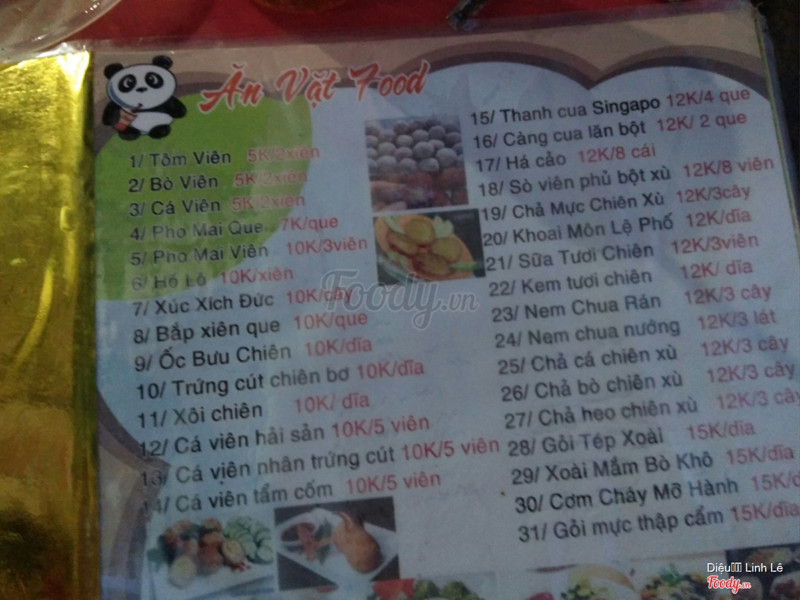 Ăn Vặt Food
1/ Tôm Viên 5K/2xiên
2/ Bò Viên 5K/2xiên
3/ Cá Viên 5K/2xiên
4/ Pho Mai Que 7K/que
5/ Pho Mai Viên 10K/3viên
6/ Hồ Lô 10K/xiên
7/ Xúc Xích Đức 10K/cây
8/ Bắp xiên que 10K/que
9/ Ốc Bưu Chiên 10K/dĩa
10/ Trứng cút chiên bơ 10K/dĩa
11/ Xôi chiên 10K/ dĩa
12/ Cá viên hải sản 10K/5 viên
13/ Cá viên nhân trứng cút 10K/5 viên
14/ Cá viên tẩm cốm 10K/5 viên
15/ Thanh cua Singapo 12K/4 que
16/ Càng cua lăn bột 12K/ 2 que
17/ Há cảo 12K/8 cái
18/ Sò viên phủ bột xù 12K/8 viên
19/ Chả Mực Chiên Xù 12K/3cây
20/ Khoai Môn Lệ Phố 12K/dĩa
21/ Sữa Tươi Chiên 12K/3viên
22/ Kem tươi chiên 12K/ dĩa
23/ Nem Chua Rán 12K/3 cây
24/ Nem chua nướng 12K/3 lát
25/ Chả cá chiên xù 12K/3 cây
26/ Chả bò chiên xù 12K/3 cây
27/ Chả heo chiên xù 12K/3 cây
28/ Gỏi Tép Xoài 15K/dĩa
29/ Xoài Mắm Bò Khô 15K/dĩa
30/ Cơm Cháy Mỡ Hành 15K/d
31/ Gỏi mực thập cẩm 15K/dĩa
Foody.vn
Diệu Linh Lê
Foody.vn